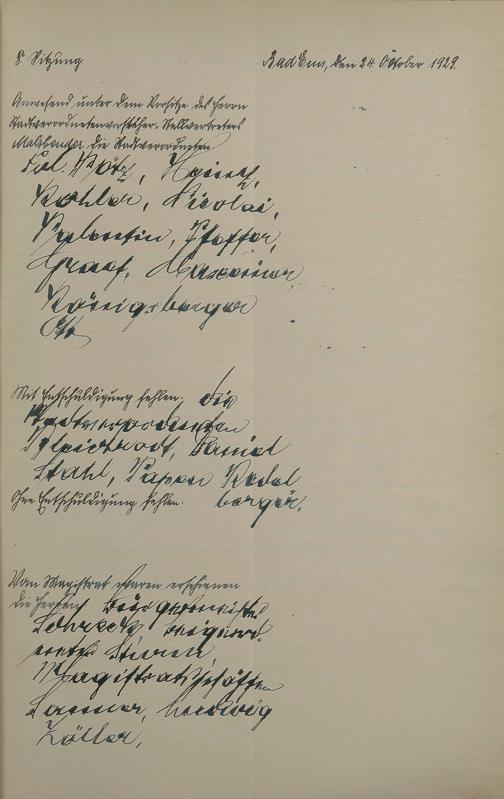 8. Sitzung
Bad Ems, den 24. Oktober 1929.
Anwesend unter dem Vorsitze des Herrn
Stadtverordnetenvorsteher-Stellvertreters
die Stadtverordneten
Frl. Heintz,
Kohler, Nicolai,
Valentin, Pfeffer,
Graef,
Königsberger
Ott
Mit Entschuldigung fehlen: die
Stadtverordneten
Daniel
Stahl,
berger.
Ohne Entschuldigung fehlen.
Vom Magistrat waren erschienen
die Herren Bürgermeister
Beigeord-
neter
Magistratsschöffen
Ludwig
Zöller.